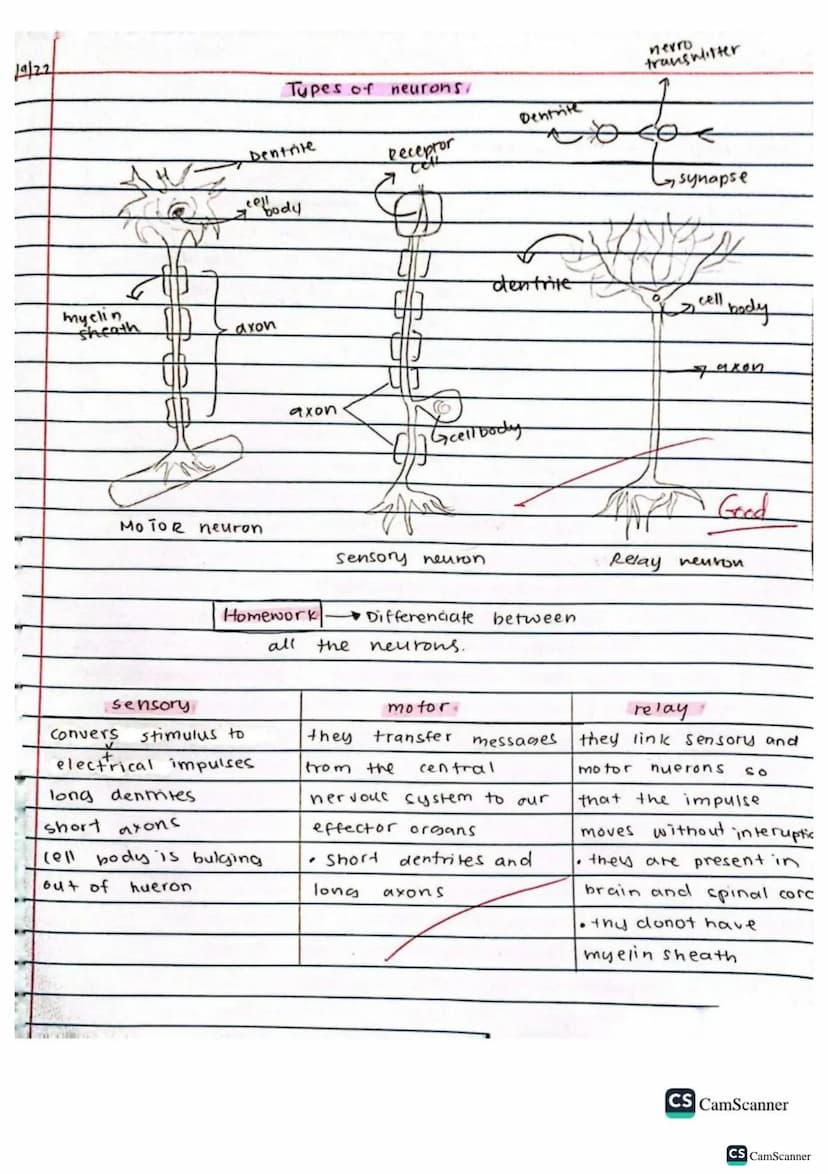 19/22
nerro
transmitter
Types of neurons.
Dentrite
synapse
Dentrite
cell
body
myelin
sheath
axon
MOTOR neuron
Receptor
cell
axon
cell body
sensory neuron
dentrite
cell
body
axon
Good
Relay neuron
Homework → Differenciate between
all the neurons.
sensory
convers stimulus to
electrical impulses
long dentrites
short axons
cell body is bulging
out of nueron
motor
they transfer messages
from the central
nervous system to our
effector organs
• short dentrites and
long axons
relay
they link sensory and
motor nuerons so
that the impulse
moves without interuptio
• they are present in
brain and spinal corc
• thy donot have
myelin sheath
CS CamScanner
CS CamScanner